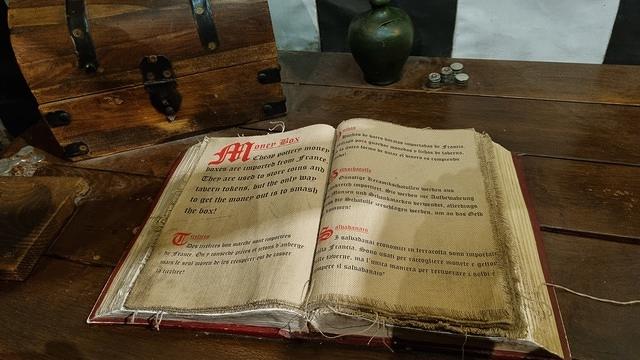 Money Box
Cheap pottery money
boxes are imported from France.
They are used to store coins and
tavern tokens, but the only way
to get the money out is to smash
the box!
Tirelires
Des tirelires bon marché sont importées
de France. On y conserve pièces et jetons d'auberge
mais le seul moyen de les récupérer est de casser
la tirelire!
de barro baratas importadas de Francia.
para guardar monedas y fichas de taberna,
la única forma de sacar el dinero es romperlas
Günstige Keramikschatullen werden aus
Frankreich importiert. Sie werden zur Aufbewahrung
Münzen und Schankmarken verwendet, allerdings
die Schatulle zerschlagen werden, um an das Geld
kommen!
Salvadanaio
I salvadanai economici in terracotta sono importati
dalla Francia. Sono usati per raccogliere monete e gettoni
delle taverne, ma l'unica maniera per recuperare i soldi è
rompere il salvadanaio!